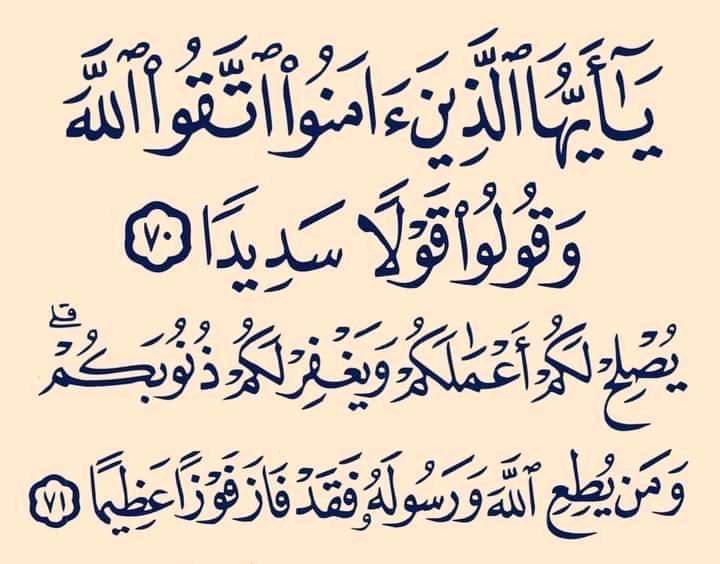 يَـٰٓأَيُّهَا ٱلَّذِينَ ءَامَنُوا۟ ٱتَّقُوا۟ ٱللَّهَ
وَقُولُوا۟ قَوْلًا سَدِيدًا ٧٠
يُصْلِحْ لَكُمْ أَعْمَـٰلَكُمْ وَيَغْفِرْ لَكُمْ ذُنُوبَكُمْ ۗ
وَمَن يُطِعِ ٱللَّهَ وَرَسُولَهُۥ فَقَدْ فَازَ فَوْزًا عَظِيمًا ٧١